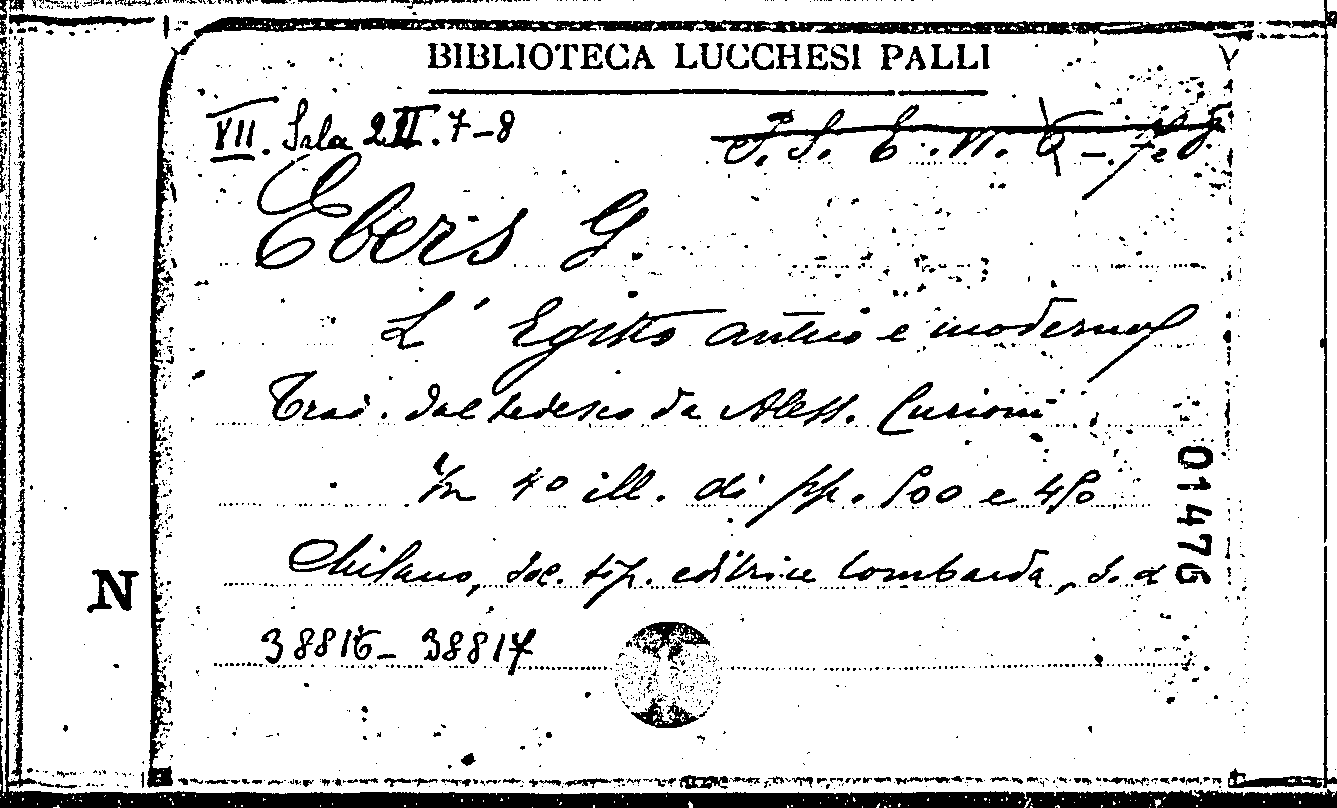 BIBLIOTECA LUCCHESI PALLI
VII. Sala 2 II. 7-8
Ebers G.
L'Egitto antico e moderno
Trad. dal tedesco da Aless. Curioni
In 4º ill. di pp. 500 e 450
Milano, Soc. tip. editrice lombarda, s. a
38816-38817
01476
N